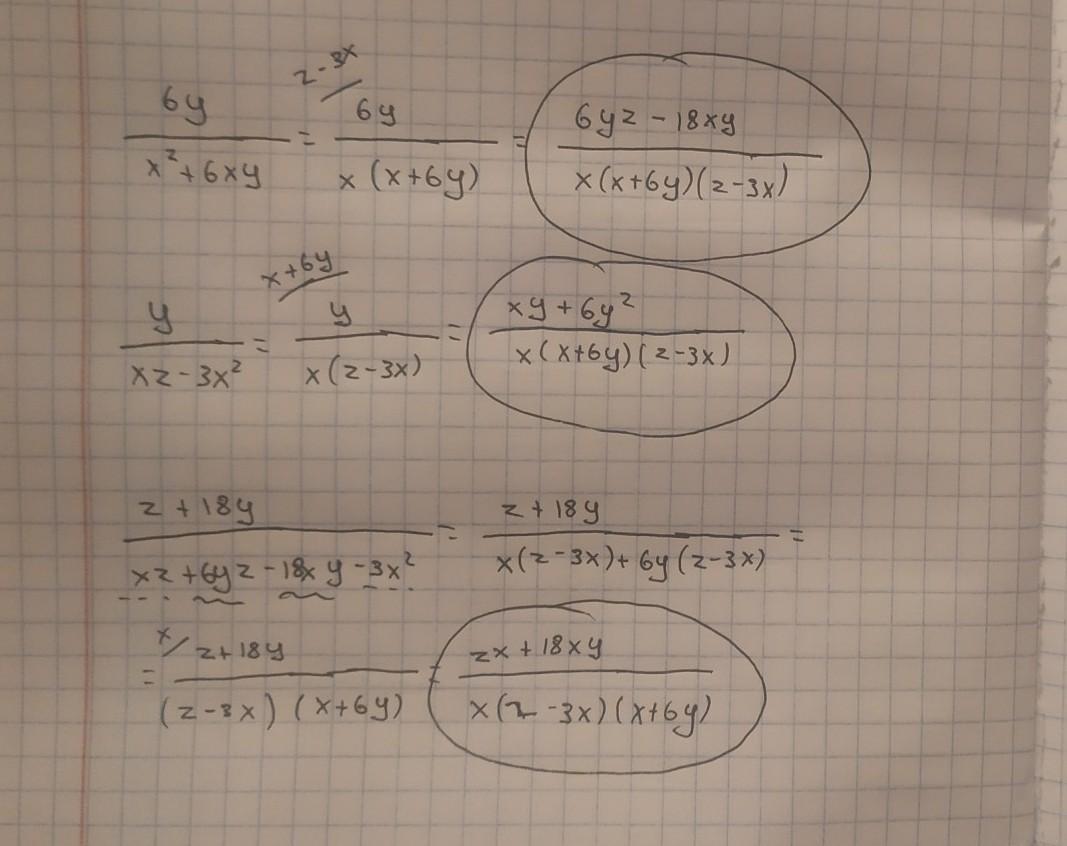 z-3x
6y/(x²+6xy) = 6y/(x(x+6y)) = (6yz-18xy)/(x(x+6y)(z-3x))
x+6y
y/(xz-3x²) = y/(x(z-3x)) = (xy+6y²)/(x(x+6y)(z-3x))
(z+18y)/(xz+6yz-18xy-3x²) = (z+18y)/(x(z-3x)+6y(z-3x)) =
= x/ (z+18y)/((z-3x)(x+6y)) = (zx+18xy)/(x(z-3x)(x+6y))